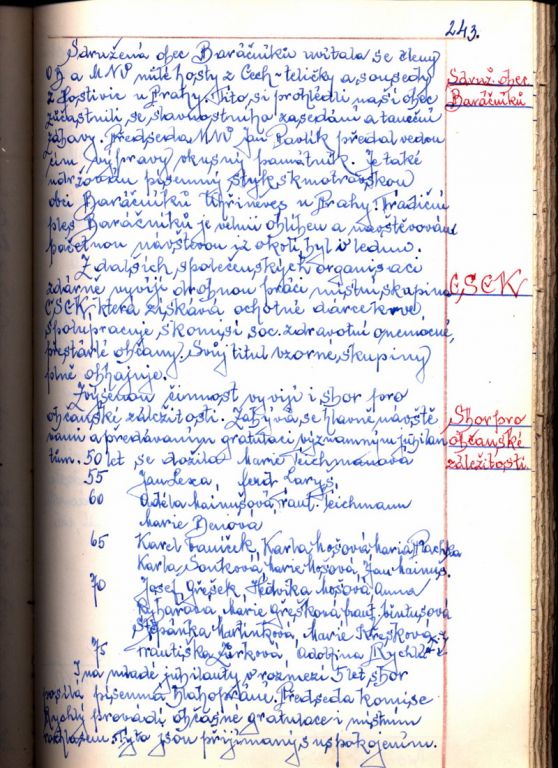 243.
Sdružená obec Baráčníků uvítala se členy
OB a MNV milé hosty z Čech - tetičky a sousedy
z Hostivic u Prahy. Tito si prohlédli naši obec
zúčastnili se slavnostního zasedání a taneční
zábavy. Předseda MNV Jan Pavlík předal vedou
címu výpravy vkusný památník. Je také
udržován písemný styk s kmotrovskou
obcí Baráčníků Uhříněves u Prahy. Tradiční
ples Baráčníků je velmi oblíben a navštěvován
početnou návštěvou i z okolí, byl i v lednu.
Sdruž. obec
Baráčníků
Z dalších společenských organisací
zdárně vyvíjí drobnou práci místní skupina
ČSČK, která získává ochotné dárce krve,
spolupracuje s komisí soc. zdravotní o nemocné,
přestárlé občany. Svůj titul vzorné skupiny
plně obhajuje.
ČSČK
Zvýšenou činnost vyvíjí i sbor pro
občanské záležitosti. Zabývá se hlavně návště
vami a předáváním gratulací významným jubilan
tům. 50 let se dožila Marie Teichmanová
Sbor pro
občanské
záležitosti.
55 Jan Leza, ferd. Larys,
60 Adéla Mainušová, frant. Teichmann
Marie Benova
65 Karel Vaníček, Karla Mošová, Maria Plachka
Karla Sontková, Marie Mošová, Jan Mainus.
70 Josef Grešek, Hedvika Mošová, Anna
Rycharová, Marie Grešková, frant. Bintusová
Štěpánka Martinková, Marie Křesková
75 františka Žurková, Adolfina Rychlá
I na mladé jubilanty v rozmezí 5 let sbor
posílá písemná blahopřání. Předseda komise
Rychlý provádí občasné gratulace i místním
rozhlasem. Tyto jsou přijímány s uspokojením.